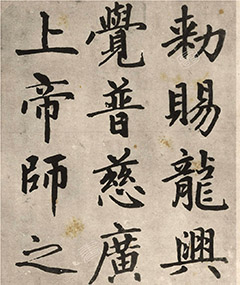 勑賜龍興
覺普慈廣
上帝師之